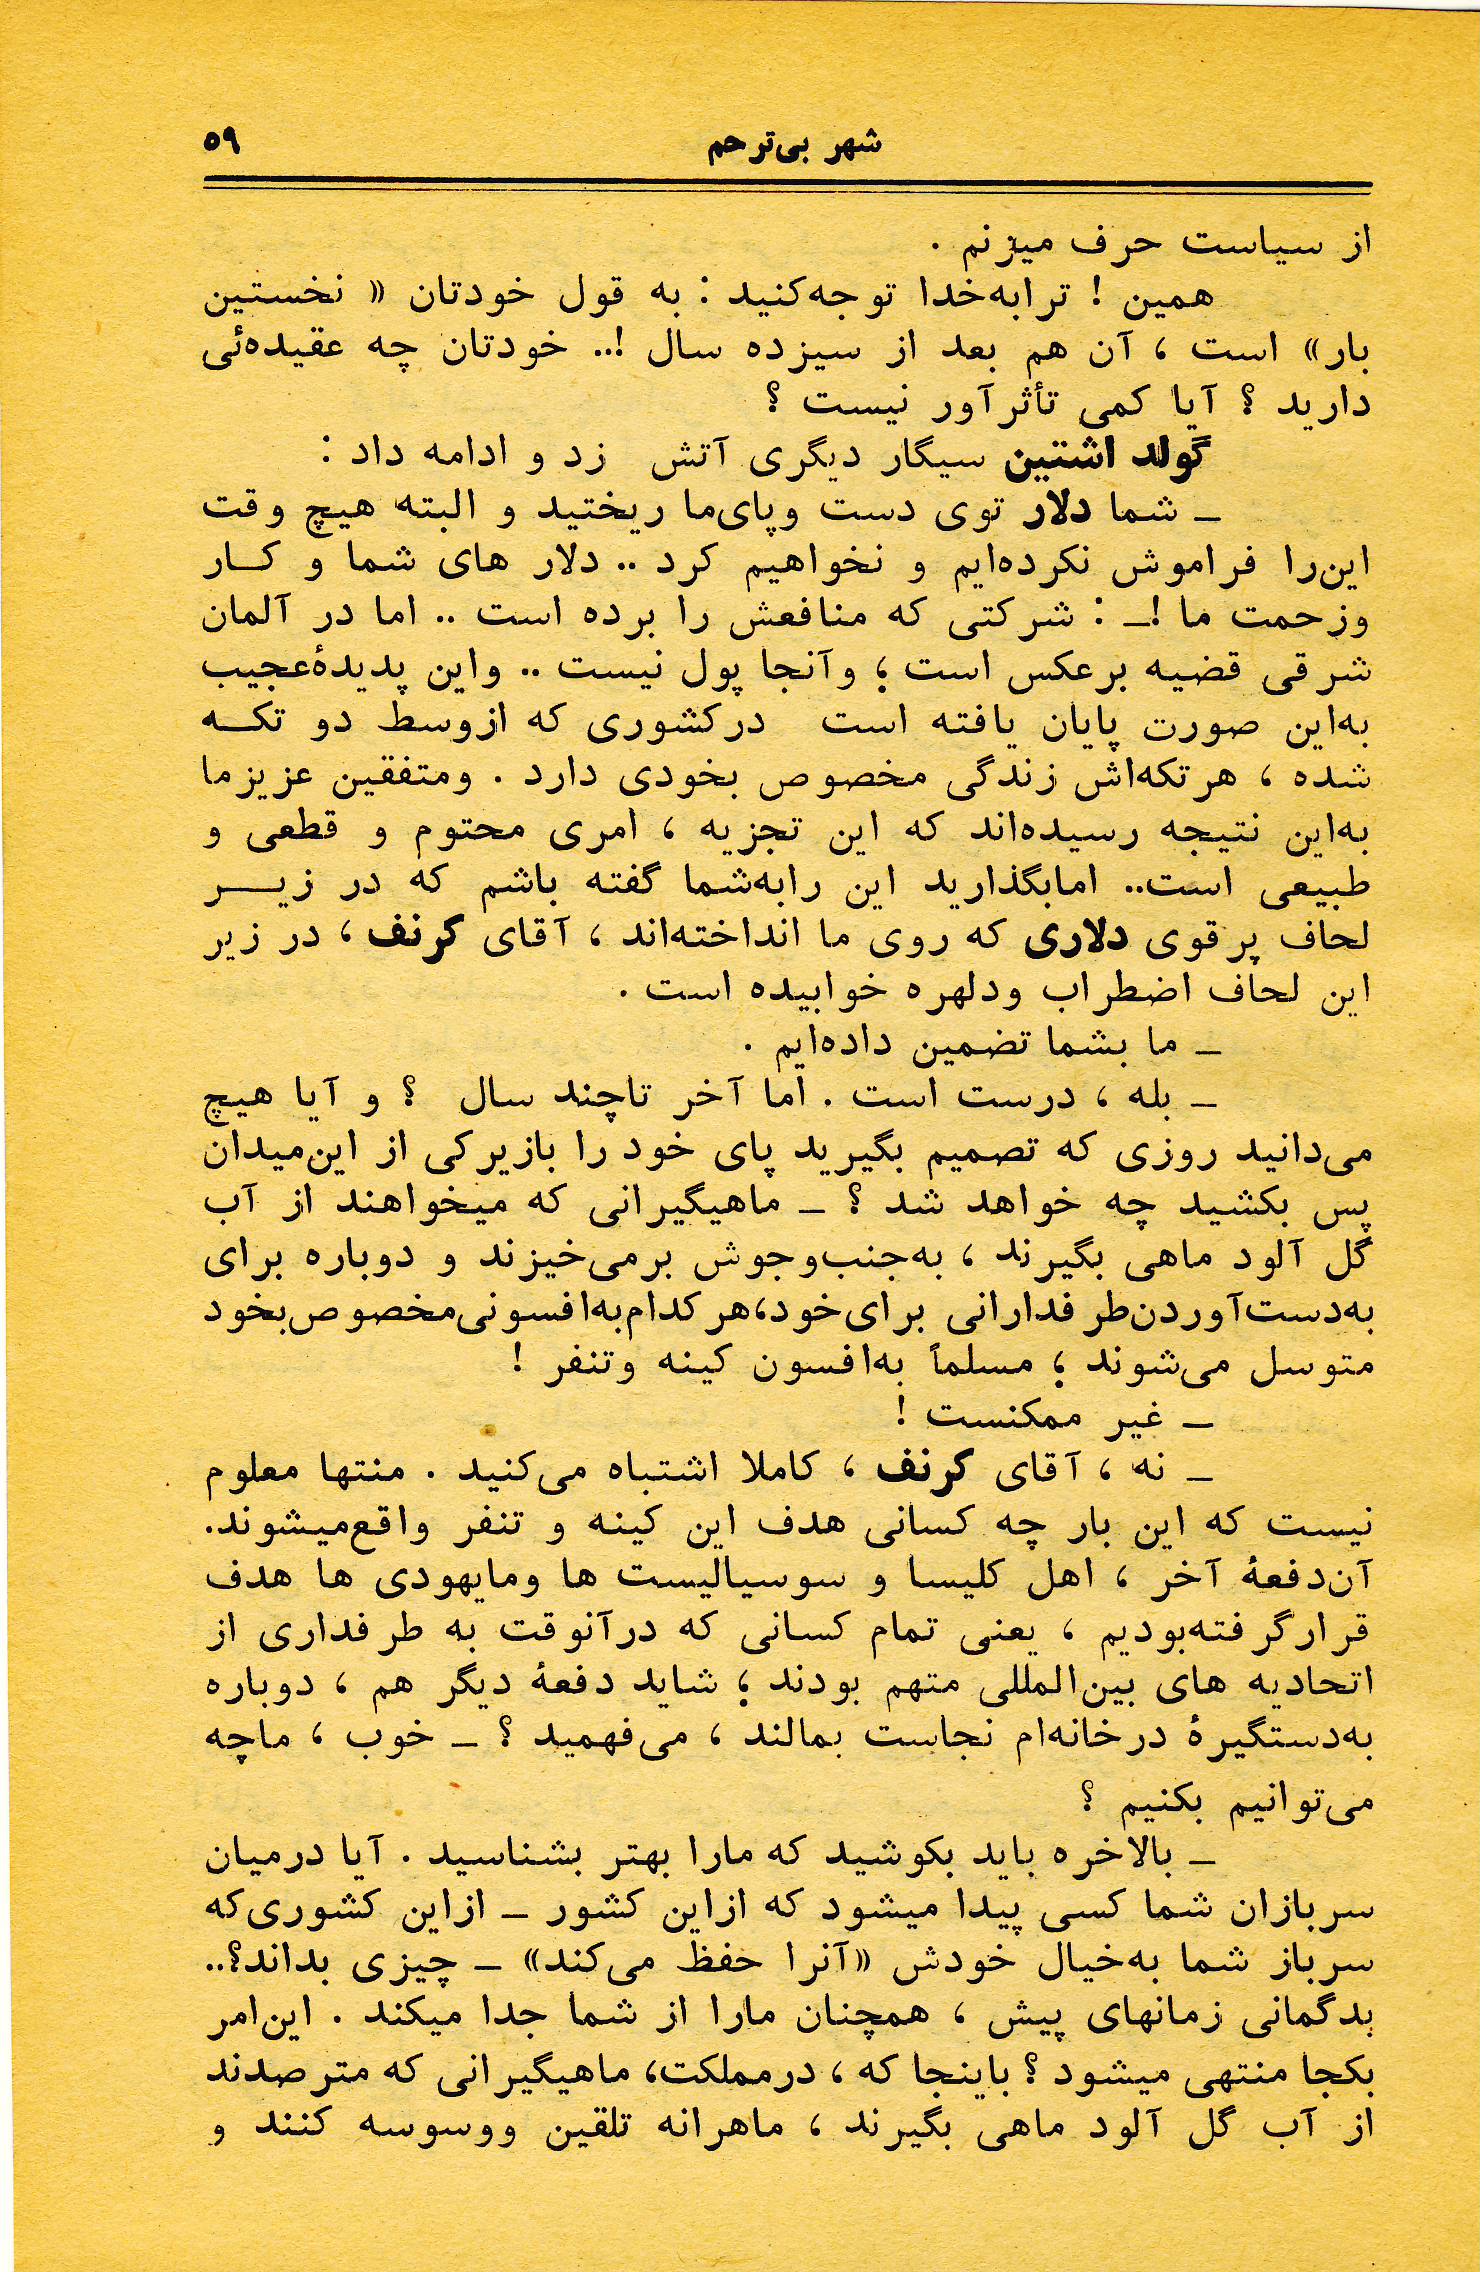 شهر بی‌ترحم ۵۹
از سیاست حرف میزنم .
همین ! ترابه‌خدا توجه‌کنید : به قول خودتان « نخستین
بار» است ، آن هم بعد از سیزده سال !.. خودتان چه عقیده‌ئی
دارید ؟ آیا کمی تأثرآور نیست ؟
گولد اشتین سیگار دیگری آتش زد و ادامه داد :
ـ شما دلار توی دست وپای‌ما ریختید و البته هیچ وقت
این‌را فراموش نکرده‌ایم و نخواهیم کرد .. دلار های شما و کـار
وزحمت ما !ـ : شرکتی که منافعش را برده است .. اما در آلمان
شرقی قضیه برعکس است ؛ وآنجا پول نیست .. واین پدیدهٔ‌عجیب
به‌این صورت پایان یافته است درکشوری که ازوسط دو تکـه
شده ، هرتکه‌اش زندگی مخصوص بخودی دارد . ومتفقین عزیزما
به‌این نتیجه رسیده‌اند که این تجزیه ، امری محتوم و قطعی و
طبیعی است.. امابگذارید این رابه‌شما گفته باشم که در زیـر
لحاف پرقوی دلاری که روی ما انداخته‌اند ، آقای کرنف ، در زیر
این لحاف اضطراب ودلهره خوابیده است .
ـ ما بشما تضمین داده‌ایم .
ـ بله ، درست است . اما آخر تاچند سال ؟ و آیا هیچ
می‌دانید روزی که تصمیم بگیرید پای خود را بازیرکی از این‌میدان
پس بکشید چه خواهد شد ؟ ـ ماهیگیرانی که میخواهند از آب
گل آلود ماهی بگیرند ، به‌جنب‌وجوش برمی‌خیزند و دوباره برای
به‌دست‌آوردن‌طرفدارانی برای‌خود،هرکدام‌به‌افسونی‌مخصوص‌بخود
متوسل می‌شوند ؛ مسلماً به‌افسون کینه وتنفر !
ـ غیر ممکنست !
ـ نه ، آقای کرنف ، کاملا اشتباه می‌کنید . منتها معلوم
نیست که این بار چه کسانی هدف این کینه و تنفر واقع‌میشوند.
آن‌دفعهٔ آخر ، اهل کلیسا و سوسیالیست ها ومایهودی ها هدف
قرارگرفته‌بودیم ، یعنی تمام کسانی که درآنوقت به طرفداری از
اتحادیه های بین‌المللی متهم بودند ؛ شاید دفعهٔ دیگر هم ، دوباره
به‌دستگیرهٔ درخانه‌ام نجاست بمالند ، می‌فهمید ؟ ـ خوب ، ماچه
می‌توانیم بکنیم ؟
ـ بالاخره باید بکوشید که مارا بهتر بشناسید . آیا درمیان
سربازان شما کسی پیدا میشود که ازاین کشور ـ ازاین کشوری‌که
سرباز شما به‌خیال خودش «آنرا حفظ می‌کند» ـ چیزی بداند؟..
بدگمانی زمانهای پیش ، همچنان مارا از شما جدا میکند . این‌امر
بکجا منتهی میشود ؟ باینجا که ، درمملکت، ماهیگیرانی که مترصدند
از آب گل آلود ماهی بگیرند ، ماهرانه تلقین ووسوسه کنند و